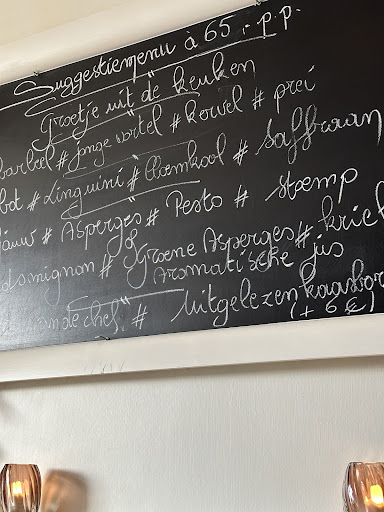 Suggestiemenu à 65,- p.p.
Groetje uit de keuken
barbeel # jonge wortel # kervel # prei
bot # Linguini # Bloemkool # Saffraan
auw # Asperges # Pesto # stoemp
dsmignon # Groene Asperges # kriel
Aromatische jus
van de chef # Uitgelezen kaasbor
(+ 6 €)